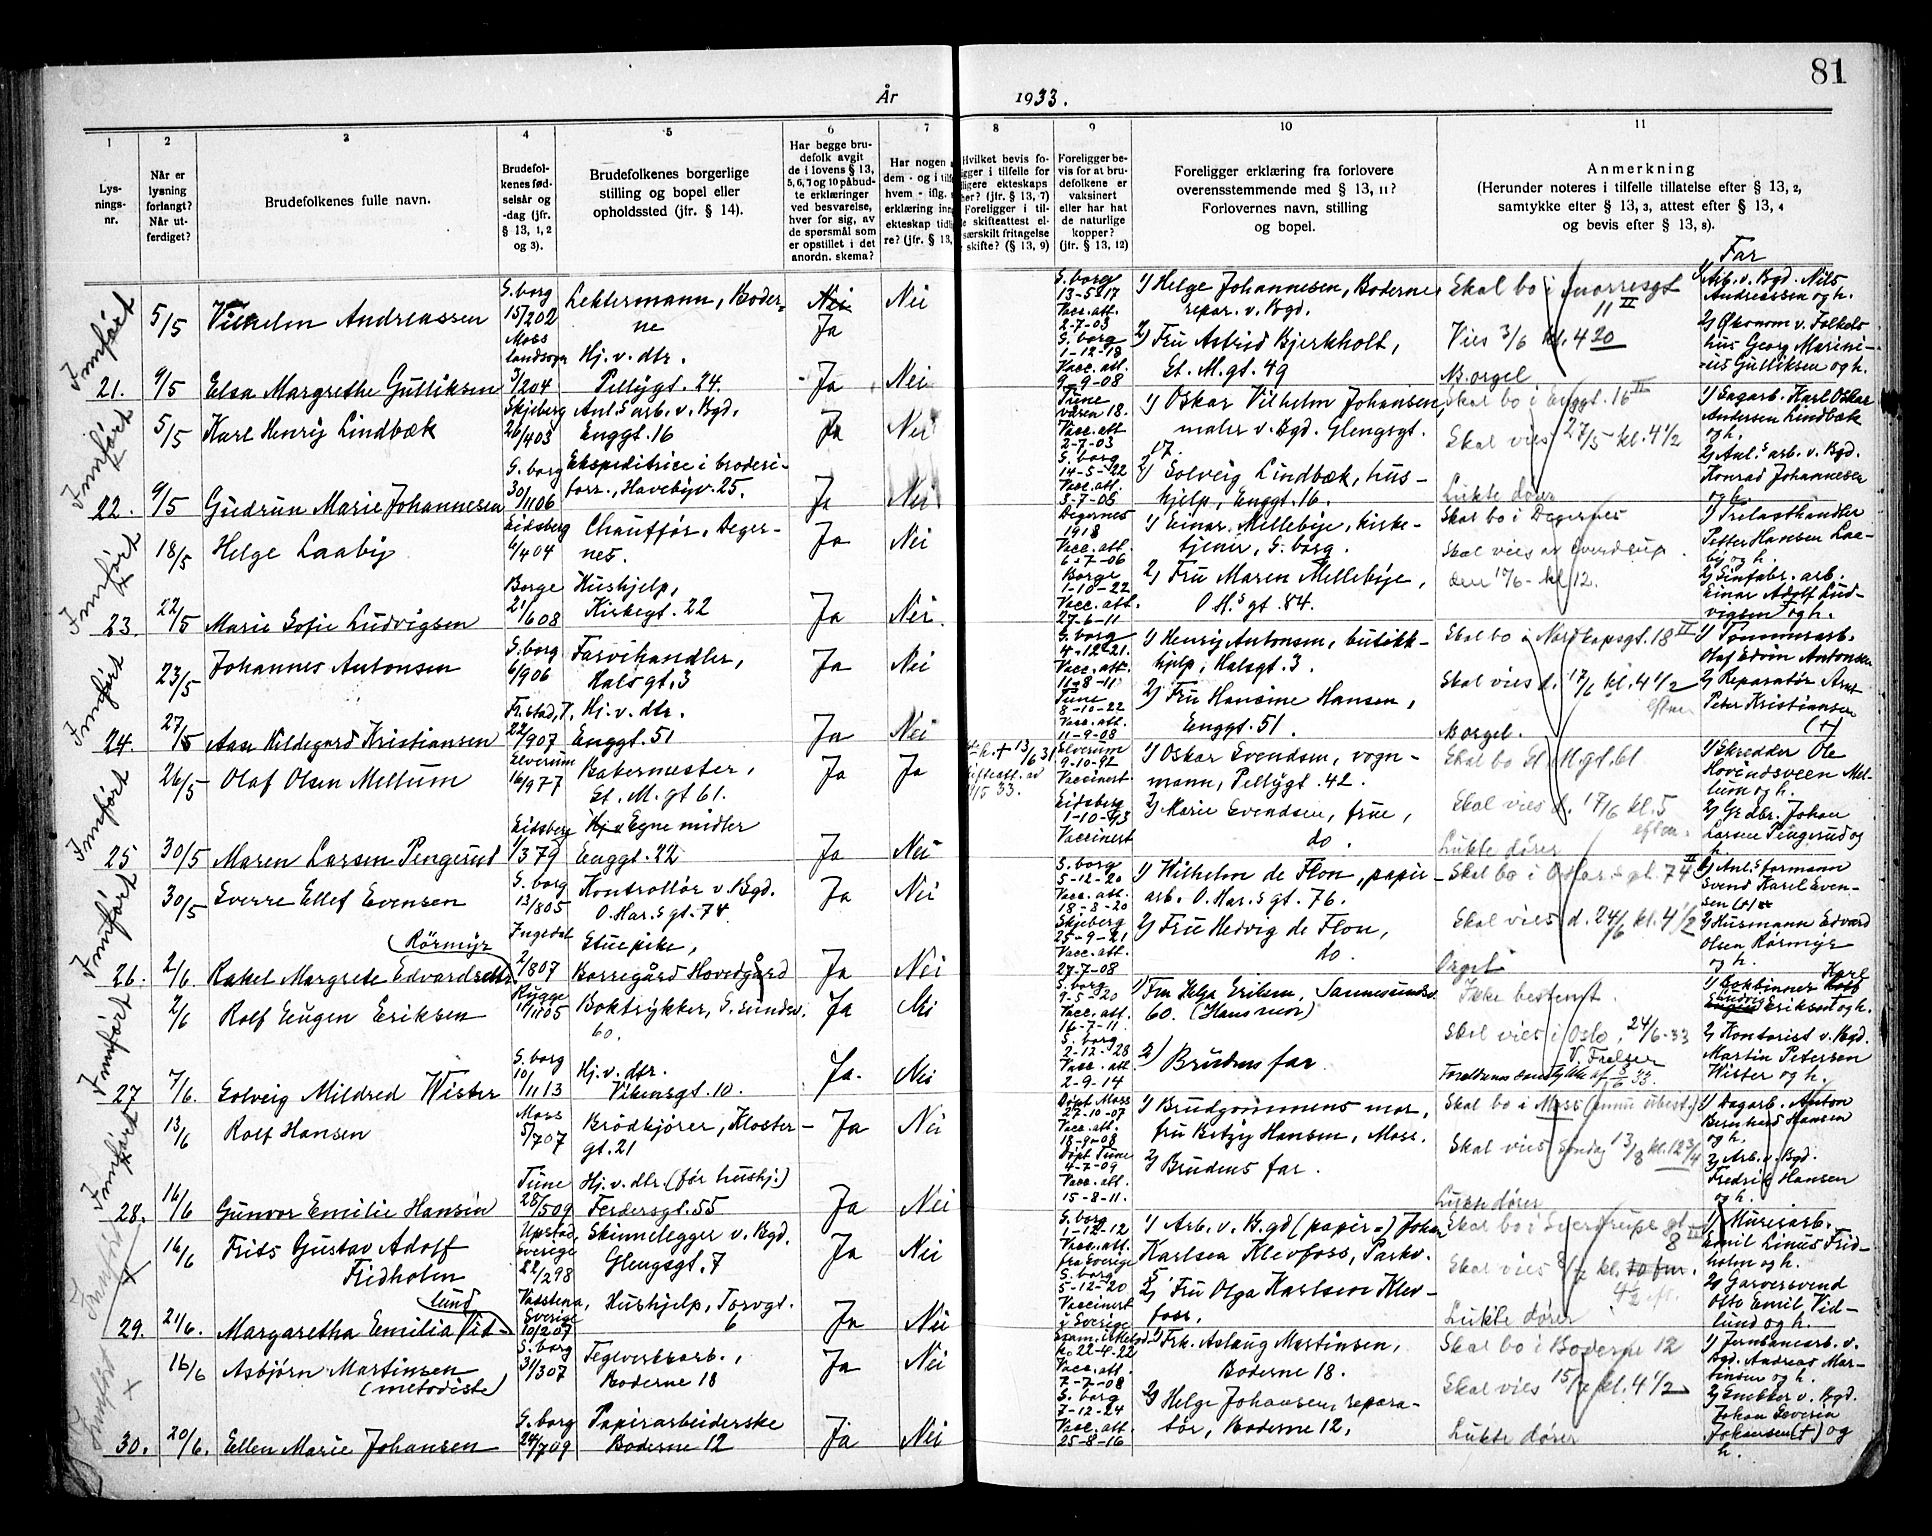 81
År 1933.
1 2 3 4 5 6 7 8 9 10 11
Lys-
nings-
nr.
Når er
lysning
forlangt?
Når ut-
ferdiget?
Brudefolkenes fulle navn.
Brudefol-
kenes fød-
selsår og
-dag (jfr.
§ 13, 1, 2
og 3).
Brudefolkenes borgerlige
stilling og bopel eller
opholdssted (jfr. § 14).
Har begge bru-
defolk avgit
de i lovens § 13,
5, 6, 7 og 10 påbud-
te erklæringer
ved besvarelse,
hver for sig, av
de spørsmål som
er opstillet i det
anordn. skema?
Har nogen
dem - og i til
hvem - iflg.
erklæring inn
ekteskap tidl
re? (jfr. § 13,
Hvilket bevis fo-
ligger i tilfelle for
ligere ekteskaps
hør? (jfr. § 13, 7)
Foreligger i til-
le skifteattest el-
særskilt fritagelse
skifte? (§ 13, 9)
Foreligger be-
vis for at bru-
defolkene er
vaksinert
eller har hat
de naturlige
kopper?
(jfr. § 13, 12)
Foreligger erklæring fra forlovere
overensstemmende med § 13, 11?
Forlovernes navn, stilling
og bopel.
Anmerkning
(Herunder noteres i tilfelle tillatelse efter § 13, 2,
samtykke efter § 13, 3, attest efter § 13, 4
og bevis efter § 13, 8).
Far
Innført
5/5 Vilhelm Andreassen
S.borg
15/2 02
Lektermann, Boder-
ne
Nei
Ja
Nei
S.borg
13-5-17
Vacc.att.
2-7-03
1) Helge Johannesen, Boderne,
repar. v. Bgd.
Skal bo i
11 II
1) Arb. v. Bgd. Nils
Andreassen og h.
21. 9/5 Elsa Margrethe Gulliksen
Moss
landsogn
3/2 04
Hj. v. dtr.
Pellygt. 24.
Ja Nei
S.borg
1-12-18
Vacc.att.
9-9-08
2) Fru Astrid Bjerkholt,
St. M.gt. 49
Vies 3/6 kl. 4 20
M. orgel
2) Økonom v. Folkets
hus Georg Marini-
us Gulliksen og h.
Innført
5/5 Karl Henry Lindbæk
Skjeberg
26/4 03
Anl.s arb. v. Bgd.
Enggt. 16
Ja Nei
Tune
våren 18.
Vacc.att.
2-7-03
1) Oskar Vilhelm Johansen,
maler v. Bgd. Glengsgt.
17.
Skal bo i Enggt. 16 II
Skal vies 27/5 kl. 4 1/2
1) Sagarb. Karl Oskar
Andersen Lindbæk
og h.
22. 9/5 Gudrun Marie Johannesen
S.borg
30/11 06
Ekspeditrise i broderi-
forr., Havebyv. 25.
Ja Nei
S.borg
14-5-22
Vacc.att.
3-7-06
2) Solveig Lindbæk, hus-
hjelp, Enggt. 16.
Lukte dører
2) Anl.s arb. v. Bgd.
Konrad Johannesen
og h.
Innført
18/5 Helge Laaby
Eidsberg
6/4 04
Chauffør, Deger-
nes.
Ja Nei
Degernes
1918
Vacc.att.
6-7-06
1) Einar Mellebye, kirke-
tjener, S.borg.
Skal bo i Degernes
Skal vies av Sverdrup
den 17/6 - kl 12.
1) Trelasthandler
Petter Hansen Laa-
by og h.
23. 22/5 Marie Sofie Ludvigsen
Borge
21/6 08
Hushjelp,
Kirkegt. 22
Ja Nei.
Borge
1-10-22
Vacc.att.
27-6-11
2) Fru Maren Mellebye,
O.H.s gt. 84.
2) Sinfabr. arb.
Einar Adolf Lud-
vigsen og h.
Innført
23/5 Johannes Antonsen
S.borg
6/9 06
Farvihandler,
Halsgt. 3
Ja Nei
S.borg
4-12-21.
Vacc.att.
11-8-11
1) Henry Antonsen, butikk-
hjelp, Halsgt. 3.
Skal bo i Nordkapsgt. 18 II
Skal vies d. 17/6 kl. 4 1/2
eftm
1) Tømmerarb.
Olaf Edvin Antonsen
24. 27/5 Aase Hildegard Kristiansen
Fr.stad,
22/9 07
Hj. v. dtr.
Enggt. 51
Ja Nei
Tune
8-10-22
Vacc.att.
11-9-08
2) Fru Hansine Hansen,
Enggt. 51.
M. orgel.
2) Reparatør Arnt
Peter Kristiansen
(+)
Innført
26/5 Olaf Olsen Mellum
Elverum
16/9 77
Bakermester,
St. M.gt 61.
Ja Ja
+ 13/6 31
skifteatt. av
/5 33.
Elverum
9-10-92
Vaccinert
1) Oskar Svendsen, vogn-
mann, Pellygt. 42.
Skal bo St. M.gt. 61
Skal vies d. 17/6 kl. 5
eftm.
1) Skredder Ole
Hovindsveen Mel-
lum og h.
25 30/5 Maren Larsen Pengerud
Eidsberg
1/3 79
Egne midler
Enggt. 22
Ja Nei
Eidsberg
1-10-93
Vaccinert
2) Marie Svendsen, frue,
do.
Lukte dører
2) Gr.dbr. Johan
Larsen Pengerud og
h.
Innført
30/5 Sverre Ellef Evensen
S.borg
13/8 05
Kontrollør v. Bgd.
O.Har.s gt. 74.
Ja Nei
S.borg
5-12-20
Vacc.att.
18-8-20
1) Wilhelm de Flon, papir-
arb. O.Har.s gt. 76.
Skal bo i Oskars gt. 74 II
Skal vies d. 24/6 kl. 4 1/2
1) Anl.s formann
Svend Karel Even-
sen (+)
(Rørmyr
26. 2/6 Rakel Margrete Edvardsen
Ingedal
2/8 07
Stuepike,
Borregård Hovedgård
Ja Nei
Skjeberg
25-9-21
Vacc.att.
27-7-08
2) Fru Hedvig de Flon,
do.
Orgel
2) Husmann Edvard
Olsen Rørmyr
og h.
Innført
2/6 Rolf Eugen Eriksen
Rygge
11/11 05
Boktrykker, S.sundsv.
60.
Ja Nei
S.borg
9-5-20
Vacc.att.
16-7-11.
1) Fru Helga Eriksen, Sannesundsv.
60. (Hans mor)
Ikke bestemt.
Skal vies i Oslo, 24/6-33
V. Frelser
Karl
1) Bokbinner
Ludvig Eriksen og h.
27 7/6. Solveig Mildred Wister
S.borg
10/11 13
Hj. v. dtr.
Vikensgt. 10.
Ja. Nei
S.borg
2-12-28
Vacc.att
2-9-14
2) Brudens far.
Foreldrenes samtykke af 5/6 33.
2) Kontorist v. Bgd.
Martin Petersen
Wister og h.
Innført
13/6 Rolf Hansen
Moss
5/7 07
Brødkjører, Kloster-
gt. 21
Ja Nei
Døpt Moss
27-10-07
Vacc.att.
18-9-08
1) Brudgommens mor,
fru Betzy Hansen, Moss.
Skal bo i Moss (ennu ubest.)
Skal vies søndag 13/8 kl. 12 3/4
1) Dagarb. Anton
Bernhard Hansen
og h.
28. 16/6 Gunvor Emilie Hansen
Tune
28/5 09
Hj. v. dtr. (før hushj.)
Ferdersgt. 55
Ja Nei
Døpt Tune
4-7-09
Vacc.att.
15-8-11.
2) Brudens far.
Lukte dører
2) Arb. v. Bgd.
Fredrik Hansen
og h.
Innført
16/6 Frits Gustav Adolf
Fridholm
Upstad,
Sverige
22/2 98
Skinnelegger v. Bgd.
Glengsgt. 7
Ja Nei
S.borg
1-12-12
Vacc.att.
fra Sverige
1) Arb. v. B.gd (papir-) Johan
Karlsen Klevfoss, Parkv.
5
Skal bo i Sverdrups gt
8 III
Skal vies kl. 10 fm.
4 1/2
1) Murerarb.
Emil Linus Frid-
holm og h.
lund
29. 21/6. Margaretha Emilia Vid-
Vadstena,
Sverige
10/2 07
Hushjelp, Torvgt.
6
Ja Nei
S.borg
5-12-20
Vaccinert
i Sverige
2) Fru Olga Karlsen Klev-
foss.
Lukte dører
2) Garversvend
Otto Emil Vid-
lund og h.
Innført
16/6 Asbjørn Martinsen
(metodist)
S.borg
31/3 07
Teglverksarb.,
Boderne 18
Ja Nei
22-4-22
Vacc.att.
7-7-08
1) Frk. Aslaug Martinsen,
Boderne 18.
Skal bo i Boderne 12
Skal vies 15/7 kl. 4 1/2
1) Jernbanearb. v.
Bgd. Andreas Mar-
tinsen og h.
30. 20/6. Ellen Marie Johansen
S.borg
24/7 09
Papirarbeiderske
Boderne 12
Ja Nei
S.borg
7-12-24
Vacc.att.
25-8-16
2) Helge Johansen, repara-
tør, Boderne 12,
Lukte dører
2) Snekker v. Bgd.
Johan Severin
Johansen (+) og
h.